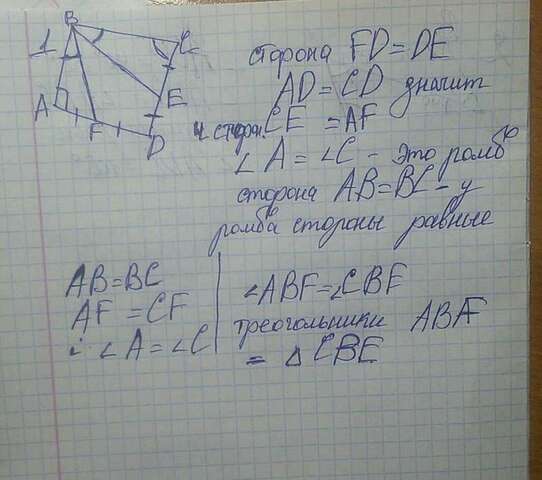 B
1
C
A
E
F
D
сторона FD = DE
AD = CD значит
и сторон. CE = AF
∠A = ∠C - это ромб
сторона AB = BC - у
ромба стороны равные
AB = BC
AF = CF
∠A = ∠C
∠ABF = ∠CBE
треогольники ABF
= △ CBE